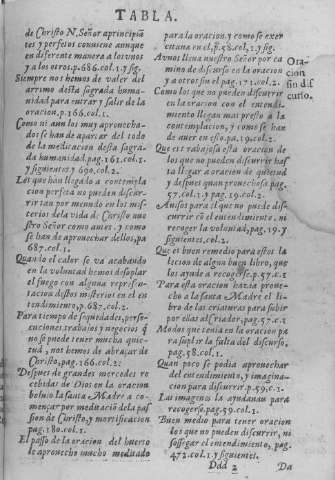 TABLA.
de Christo N. Señor a principiã
tes y perfetos conviene aunque
en diferente manera a los vnos
y a los otros. p. 686. col. 1. y sig.
Siempre nos hemos de valer del
arrimo desta sagrada huma-
nidad para entrar y salir de la
oracion, p. 166. col. 1.
Como ni aun los muy aprovecha-
dos se han de apartar del todo
de la meditacion desta sagra-
da humanidad. pag. 161. col. 1.
y siguientes y 690. col. 2.
Los que han llegado a contempla
cion perfeta no pueden discur-
rir tan por menudo en los mis-
terios de la vida d̃ Christo nue
stro Señor como antes. y como
se han de aprovechar dellos, pa
687. col. 1.
Quando el calor se va acabando
en la voluntad hemos de soplar
el fuego con alguna represen-
tacion destos misterios en el en
tendimiento, p. 687. col. 2.
Para tiempo de sequedades, perse-
cuciones, trabajos y negocios q̃
no se puede tener mucha quie-
tud, nos hemos de abraçar de
Christo, pag. 166. col. 2.
Despues de grandes mercedes re
cebidas de Dios en la oracion
bolvio la santa Madre a co-
mençar por meditaciõ dela pas
sion de Christo, y mortificacion
pag. 180. col. 1.
El passo de la oracion del huerto
le aprovecho mucho meditado
para la oracion, y como se exer
citava en el, p. 48. col. 1. y sig.
A unos lleva nuestro Señor por ca
mino de discurso en la oracion
y a otros sin el pag. 171. col. 2.
Como los que no pueden discurrir
en la oracion con el entendi-
miento llegan mas presto a la
contemplacion, y como se han
de auer en esto. pa. 19. col. 2.
Que es trabajosa esta oracion de
los que no pueden discurrir has
ta llegar a oracion de quietud
y despues quan provechosa pag.
57. col. 1. y pag. 19. col. 2.
Avisos para el que no puede dis-
currir cõ el entendimiento. ni
recoger la voluntad, pag. 19. y
siguientes. col. 2.
Que es buen remedio para estos la
lecion de algun buen libro, que
los ayuda a recogerse. p. 57. c. 2
Para esta oracion hazia prove-
cho a la santa Madre el li-
bro de las criaturas para subir
por ellas al criador, pag. 57. c. 2
Modos que tenia en la oracion pa
ra suplir la falta del discurso,
pag. 58. col. 1.
Quan poco se podia aprovechar
del entendimiento, y imagina-
cion para discurrir. p. 59. c. 1.
Las imagines la ayudavan para
recogerse. pag. 59. col. 1.
Buen medio para tener oracion
los que no pueden discurrir, ni
sossegar el entendimiento, pag.
472. col. 1. y siguientes.
Ora-
cion
sin dis
curso.
Ddd 2
Da